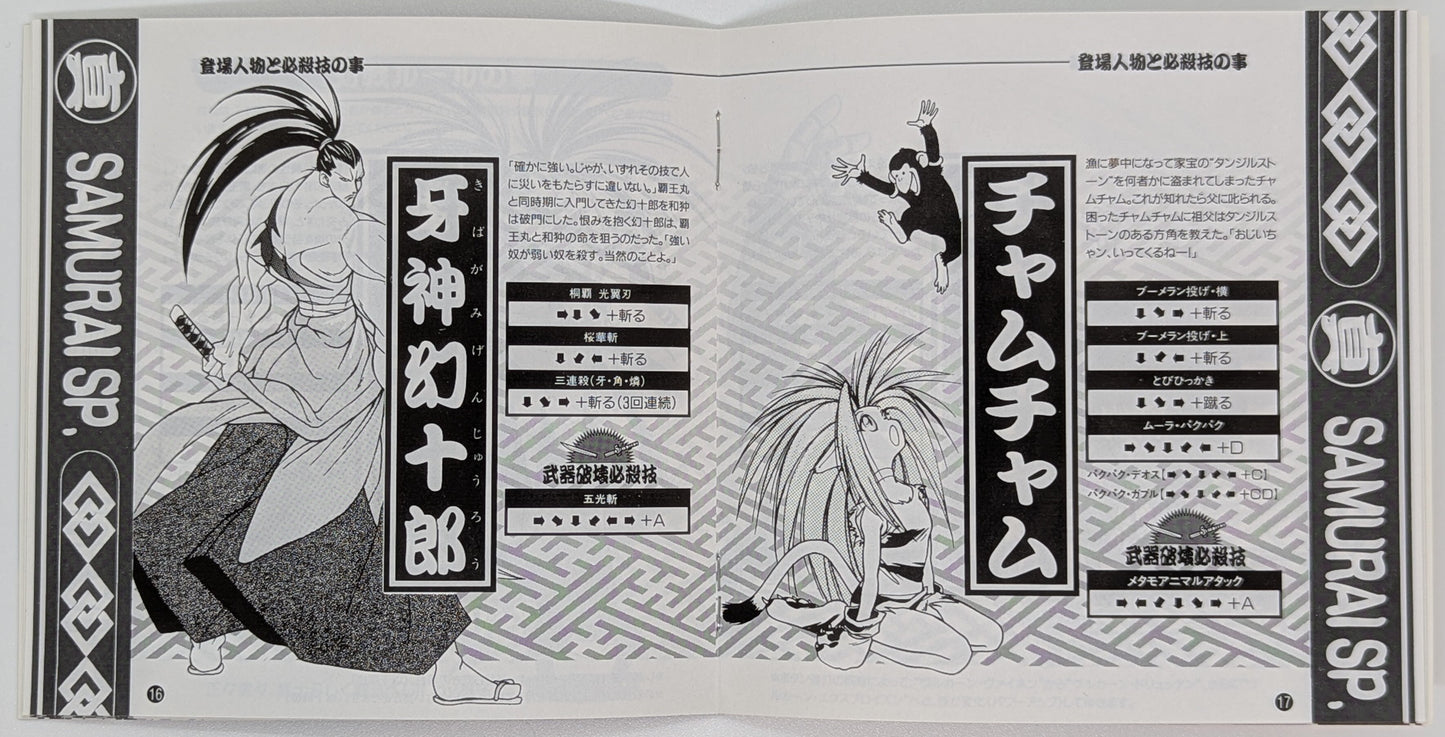 真
SAMURAI SP.
登場人物と必殺技の事
牙神幻十郎
きばがみげんじゅうろう
「確かに強い。じゃが、いずれその技で人
に災いをもたらすに違いない。」覇王丸
と同時期に入門してきた幻十郎を和狆
は破門にした。恨みを抱く幻十郎は、覇
王丸と和狆の命を狙うのだった。「強い
奴が弱い奴を殺す。当然のことよ。」
桐覇 光翼刃
➡⬇⬊+斬る
桜華斬
⬇⬋⬅+斬る
三連殺(牙・角・燐)
⬇⬊➡+斬る(3回連続)
武器破壊必殺技
五光斬
➡⬊⬇⬋⬅➡+A
16
登場人物と必殺技の事
チャムチャム
漁に夢中になって家宝の“タンジルスト
ーン”を何者かに盗まれてしまったチャ
ムチャム。これが知れたら父に叱られる。
困ったチャムチャムに祖父はタンジルス
トーンのある方角を教えた。「おじいち
ゃン、いってくるねー!」
ブーメラン投げ・横
⬇⬊➡+斬る
ブーメラン投げ・上
⬇⬋⬅+斬る
とびひっかき
⬇⬊➡+蹴る
ムーラ・パクパク
➡⬊⬇⬋⬅+D
パクパク・デオス【➡⬊⬇⬋⬅+C】
パクパク・ガブル【➡⬊⬇⬋⬅+CD】
武器破壊必殺技
メタモアニマルアタック
➡⬅⬋⬇⬊➡+A
17
真
SAMURAI SP.